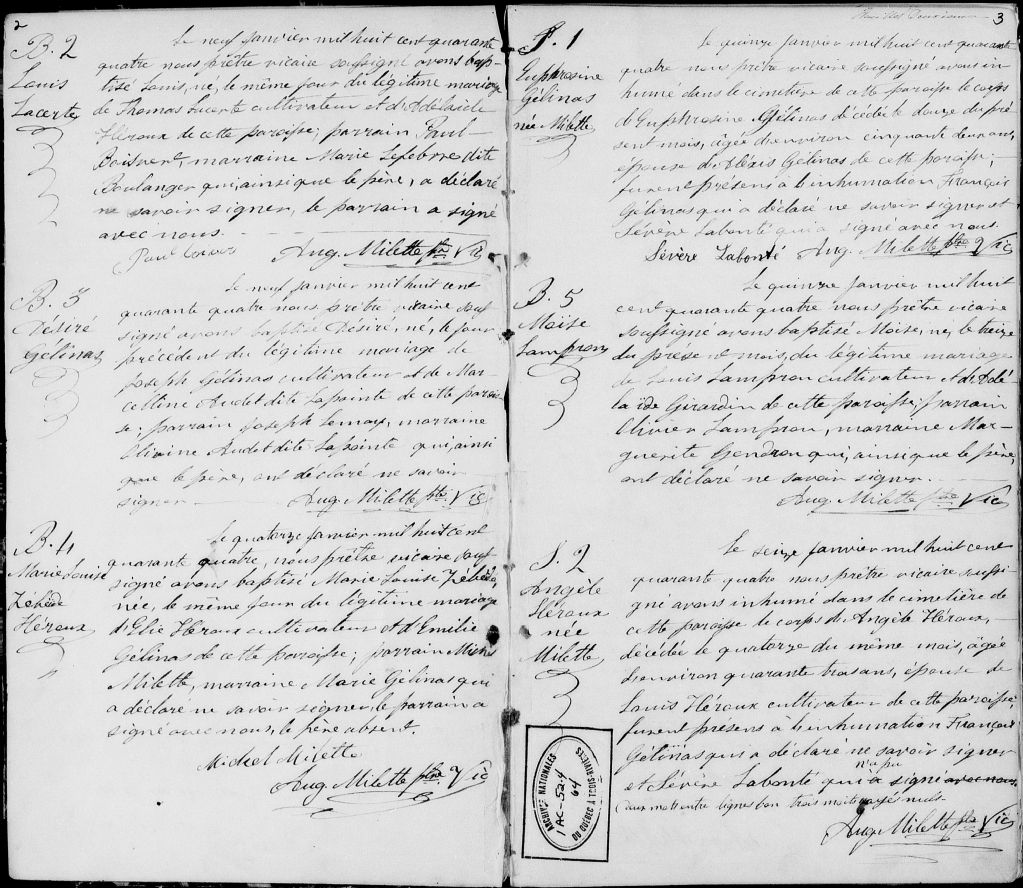 2
B. 2
Louis
Lacerte
Le neuf janvier mil huit cent quarante
quatre nous prêtre vicaire soussigné avons bap-
tisé Louis, né, le même jour du légitime mariage
de Thomas Lacerte cultivateur et d'Adelaide
Héroux de cette paroisse; parrain Paul
Boisvert, marraine Marie Lefebvre dite
Boulanger qui, ainsi que le père, a déclaré
ne savoir signer, le parrain a signé
avec nous.
Paul
Aug. Milette ptre Vic
B. 3
Désiré
Gélinas
Le neuf janvier mil huit cent
quarante quatre nous prêtre vicaire sous
signé avons baptisé Désiré, né, le jour
précédent du légitime mariage de
Joseph Gélinas cultivateur et de Mar-
celline Audet dite Lapointe de cette parois
se; parrain Joseph Lemay, marraine
Olivine Audet dite Lapointe qui, ainsi
que le père, ont déclaré ne savoir
signer
Aug. Milette ptre Vic
B. 4
Marie Louise
Zébéde
Héroux
Le quatorze janvier mil huit cent
quarante quatre, nous prêtre vicaire sous
signé avons baptisé Marie Louise Zébéde,
née, le même jour du légitime mariage
d'Elie Héroux cultivateur et d'Emilie
Gélinas de cette paroisse; parrain Michel
Milette, marraine Marie Gélinas qui
a déclaré ne savoir signer, le parrain a
signé avec nous, le père absent.
Michel Milette
Aug. Milette ptre Vic
3
S. 1
Euphrosine
Gélinas
née Milette
Le quinze janvier mil huit cent quarante
quatre nous prêtre vicaire soussigné avons in
humé dans le cimetière de cette paroisse le corps
d'Euphrosine Gélinas décédée le douze du pré
sent mois, âgée d'environ cinquante deux ans,
épouse d'Alexis Gélinas de cette paroisse;
furent présens à l'inhumation François
Gélinas qui a déclaré ne savoir signer et
Sévère Labonté qui a signé avec nous.
Sévère Labonté Aug. Milette ptre Vic
B. 5
Moïse
Lampron
Le quinze janvier mil huit
cent quarante quatre nous prêtre vicaire
soussigné avons baptisé Moïse, né, le treize
du présent mois, du légitime mariage
de Louis Lampron cultivateur et d'Adé
laïde Girardin de cette paroisse; parrain
Olivier Lampron, marraine Mar-
guerite Gendron qui, ainsi que le père,
ont déclaré ne savoir signer.
Aug. Milette ptre Vic
S. 2
Angèle
Héroux
née
Milette
Le seize janvier mil huit cent
quarante quatre nous prêtre vicaire soussi
gné avons inhumé dans le cimetière de
cette paroisse le corps d'Angèle Héroux,
décédée le quatorze du même mois, âgée
d'environ quarante trois ans, épouse de
Louis Héroux cultivateur de cette paroisse;
furent présens à l'inhumation François
Gélinas qui a déclaré ne savoir signer
n'a pu
et Sévère Labonté qui a signé avec nous.
deux mots entre lignes bon trois mots rayés nuls.
Aug. Milette ptre Vic
ARCHIVES NATIONALES
1AC-524
64
DU QUÉBEC À TROIS-RIVIÈRES